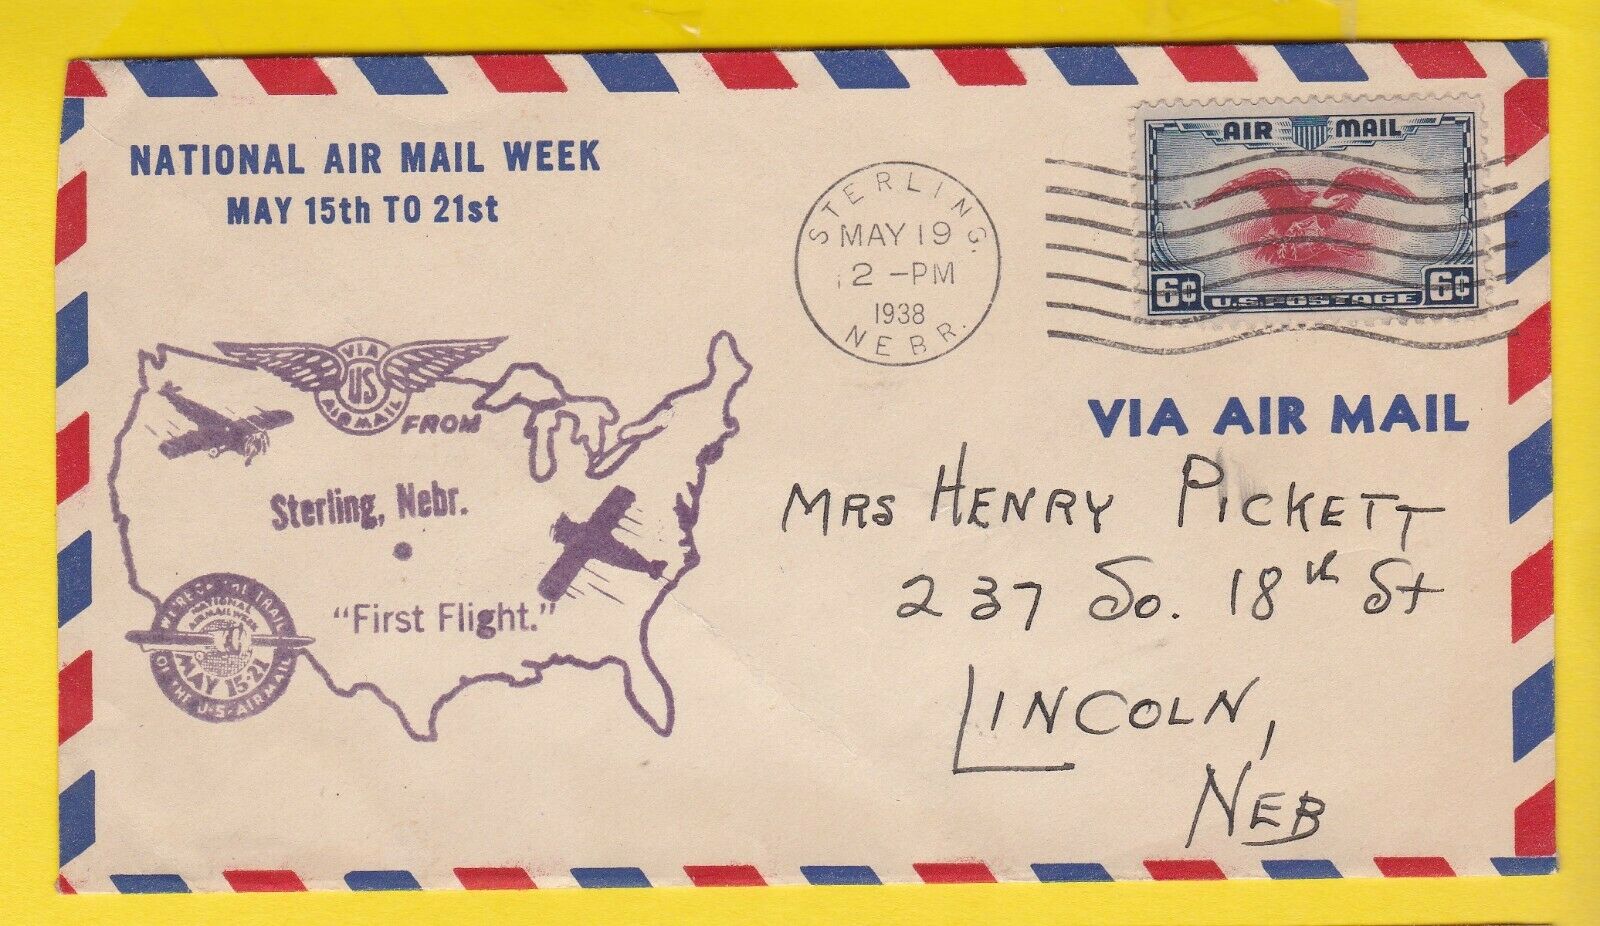 NATIONAL AIR MAIL WEEK
MAY 15th TO 21st
STERLING, NEBR.
MAY 19
2 -PM
1938
AIR MAIL
6¢ U.S. POSTAGE 6¢
VIA AIR MAIL
VIA
US
AIR MAIL
FROM
Sterling, Nebr.
"First Flight."
NATIONAL
AIR MAIL WEEK
MAY 15-21
OF THE U-S-AIR MAIL
MRS HENRY PICKETT
237 So. 18th St
LINCOLN,
NEB